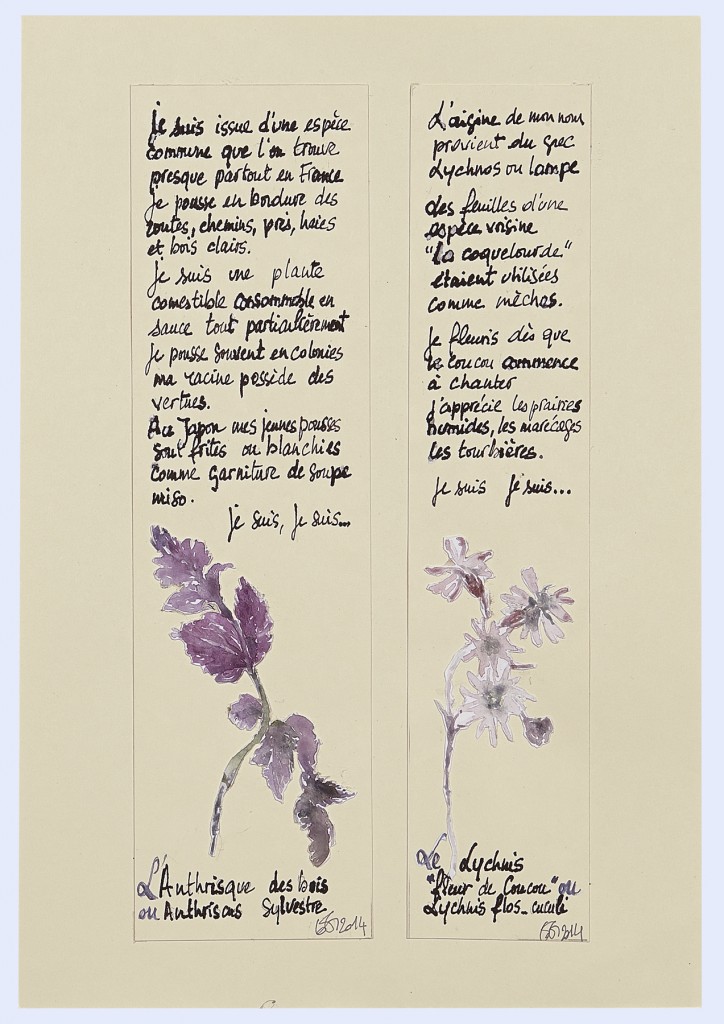 Je suis issue d'une espèce
commune que l'on trouve
presque partout en France
je pousse en bordure des
routes, chemins, prés, haies
et bois clairs.
Je suis une plante
comestible consommable en
sauce tout particulièrement
je pousse souvent en colonies
ma racine possède des
vertues.
Au Japon mes jeunes pousses
sont frites ou blanchies
comme garniture de soupe
miso.
Je suis, Je suis...
L'Anthrisque des bois
ou Anthriscus Sylvestre
2014
L'origine de mon nom
provient du grec
Lychnos ou lampe
des feuilles d'une
espèce voisine
"la coquelourde"
étaient utilisées
comme mèches.
Je fleuris dès que
le Coucou commence
à chanter
j'apprécie les prairies
humides, les marécages
les tourbières.
Je suis Je suis...
Le Lychnis
"fleur de Coucou" ou
Lychnis flos-cuculi
2014